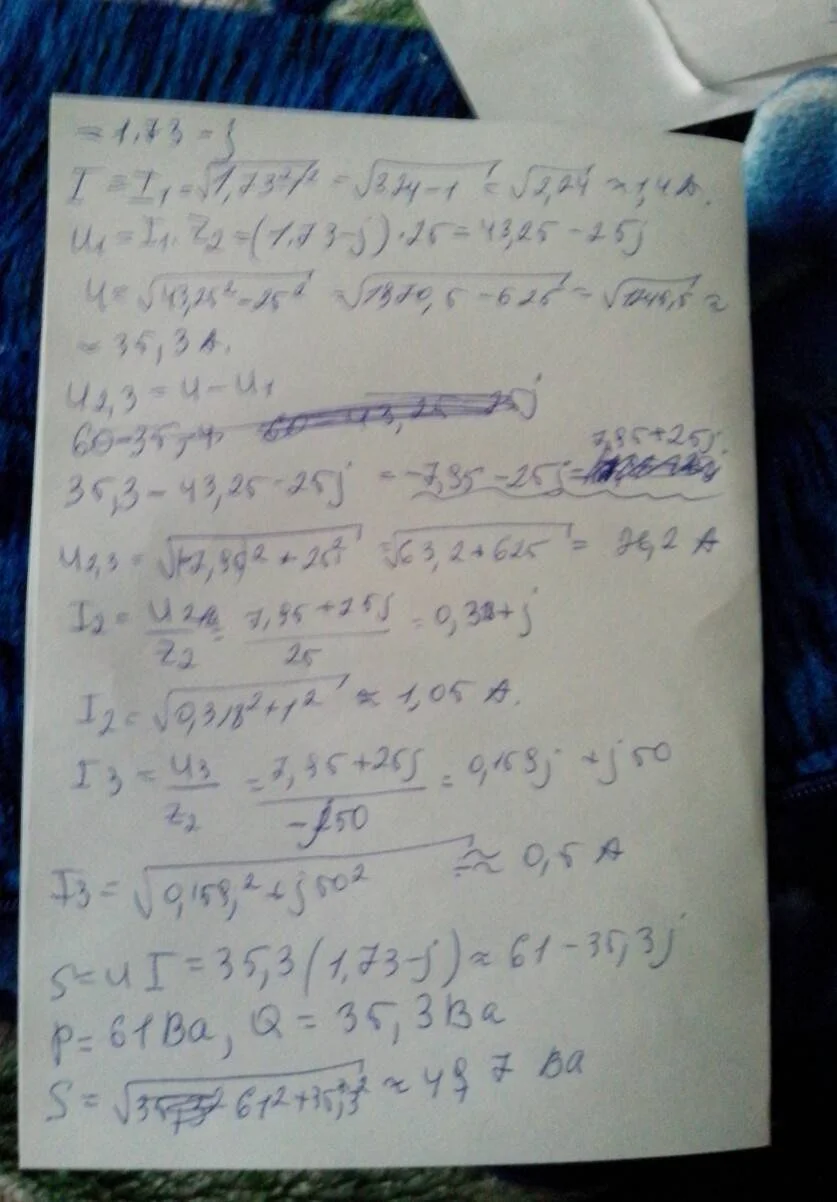 = 1.73 - j
I = I₁ = √1,73² 1² = √3,24 - 1 = √2,24 ≈ 1,4 A.
U₁ = I₁ · Z₂ = (1.73 - j) · 25 = 43,25 - 25j
U = √43,25² - 25² = √1870,5 - 625 = √1245,5 ≈
≈ 35,3 A.
U₂,₃ = U - U₁
35,3 - 43,25 - 25j = -7,95 - 25j = 7,95 + 25j
U₂,₃ = √(-7,95)² + 25² = √63,2 + 625 = 26,2 A
I₂ = U₂ / Z₂ = 7,95 + 25j / 25 = 0,31 + j
I₂ = √0,318² + 1² ≈ 1,05 A.
I₃ = U₃ / Z₂ = 7,95 + 25j / -j50 = 0,159j + j50
I₃ = √0,159,² + j50² ≈ 0,5 A
S = U I = 35,3 (1,73 - j) ≈ 61 - 35,3j
P = 61 Ва, Q = 35,3 Ва
S = √61² + 35,3² ≈ 49,7 Ва